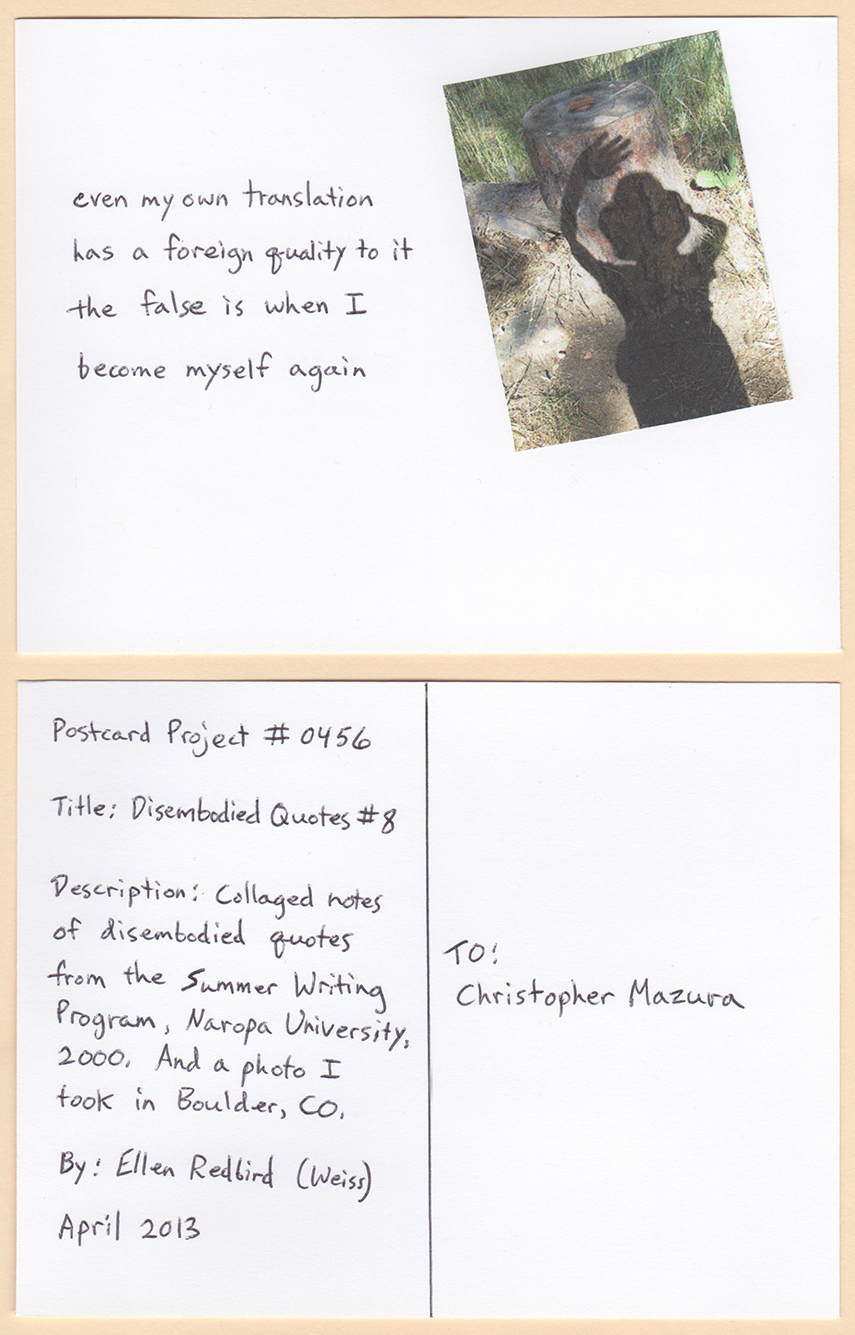 even my own translation
has a foreign quality to it
the false is when I
become myself again
Postcard Project # 0456
Title: Disembodied Quotes #8
Description: Collaged notes
of disembodied quotes
from the Summer Writing
Program, Naropa University,
2000. And a photo I
took in Boulder, CO.
By: Ellen Redbird (Weiss)
April 2013
TO:
Christopher Mazura